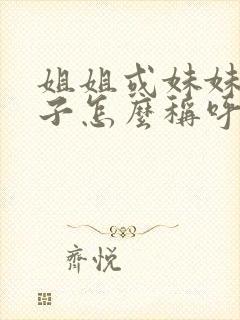 姐姐或妹妹
子怎麼稱呼
齊悅